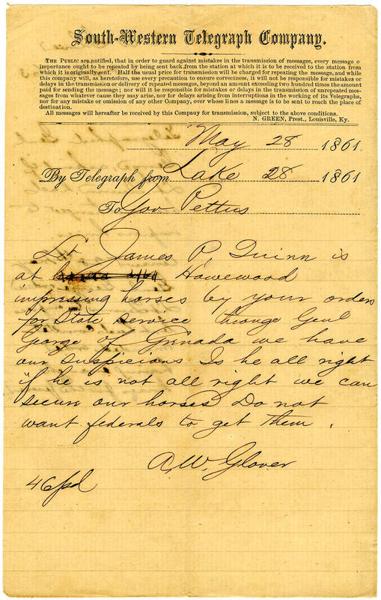 South-Western Telegraph Company.
THE PUBLIC are notified, that in order to guard against mistakes in the transmission of messages, every message of
importance ought to be repeated by being sent back from the station at which it is to be received to the station from
which it is originally sent. Half the usual price for transmission will be charged for repeating the message, and while
this company will, as heretofore, use every precaution to ensure correctness, it will not be responsible for mistakes or
delays in the transmission or delivery of repeated messages, beyond an amount exceeding two hundred times the amount
paid for sending the message; nor will it be responsible for mistakes or delays in the transmission of unrepeated mes-
sages from whatever cause they may arise, nor for delays arising from interruptions in the working of its Telegraphs,
nor for any mistake or omission of any other Company, over whose lines a message is to be sent to reach the place of
destination.
All messages will hereafter be received by this Company for transmission, subject to the above conditions.
N. GREEN, Prest., Louisville, Ky.
May 28 1861
By Telegraph from Lake 28 1861
To Gov Pettus
Lt James P, Quinn is
at Howewood
impressing horses by your orders
for State service through Genl
George of Grenada we have
our suspicions Is he all right
if he is not all right we can
secure our horses Do not
want federals to get them.
A.W. Glover
46 pd